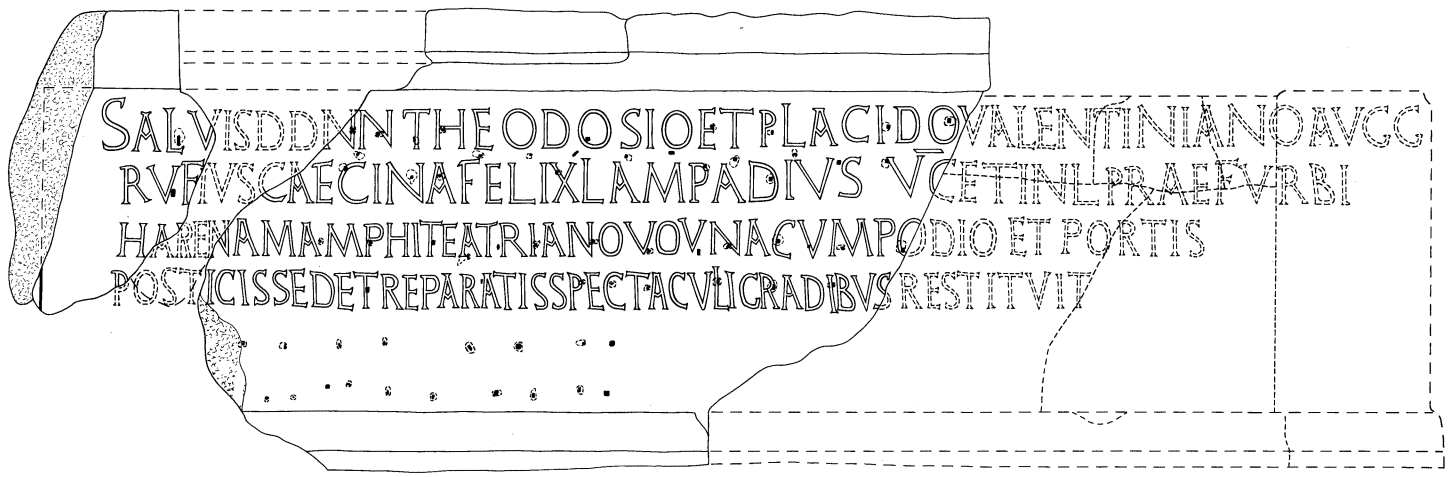 SALVIS DD NN THEODOSIO ET PLACIDO VALENTINIANO AVGG
RVFIVS CAECINA FELIX LAMPADIVS V̅C ET INL PRAEF VRBI
HARENAM AMPHITEATRI A NOVO VNA CVM PODIO ET PORTIS
POSTICIS SED ET REPARATIS SPECTACVLI GRADIBVS RESTITVIT